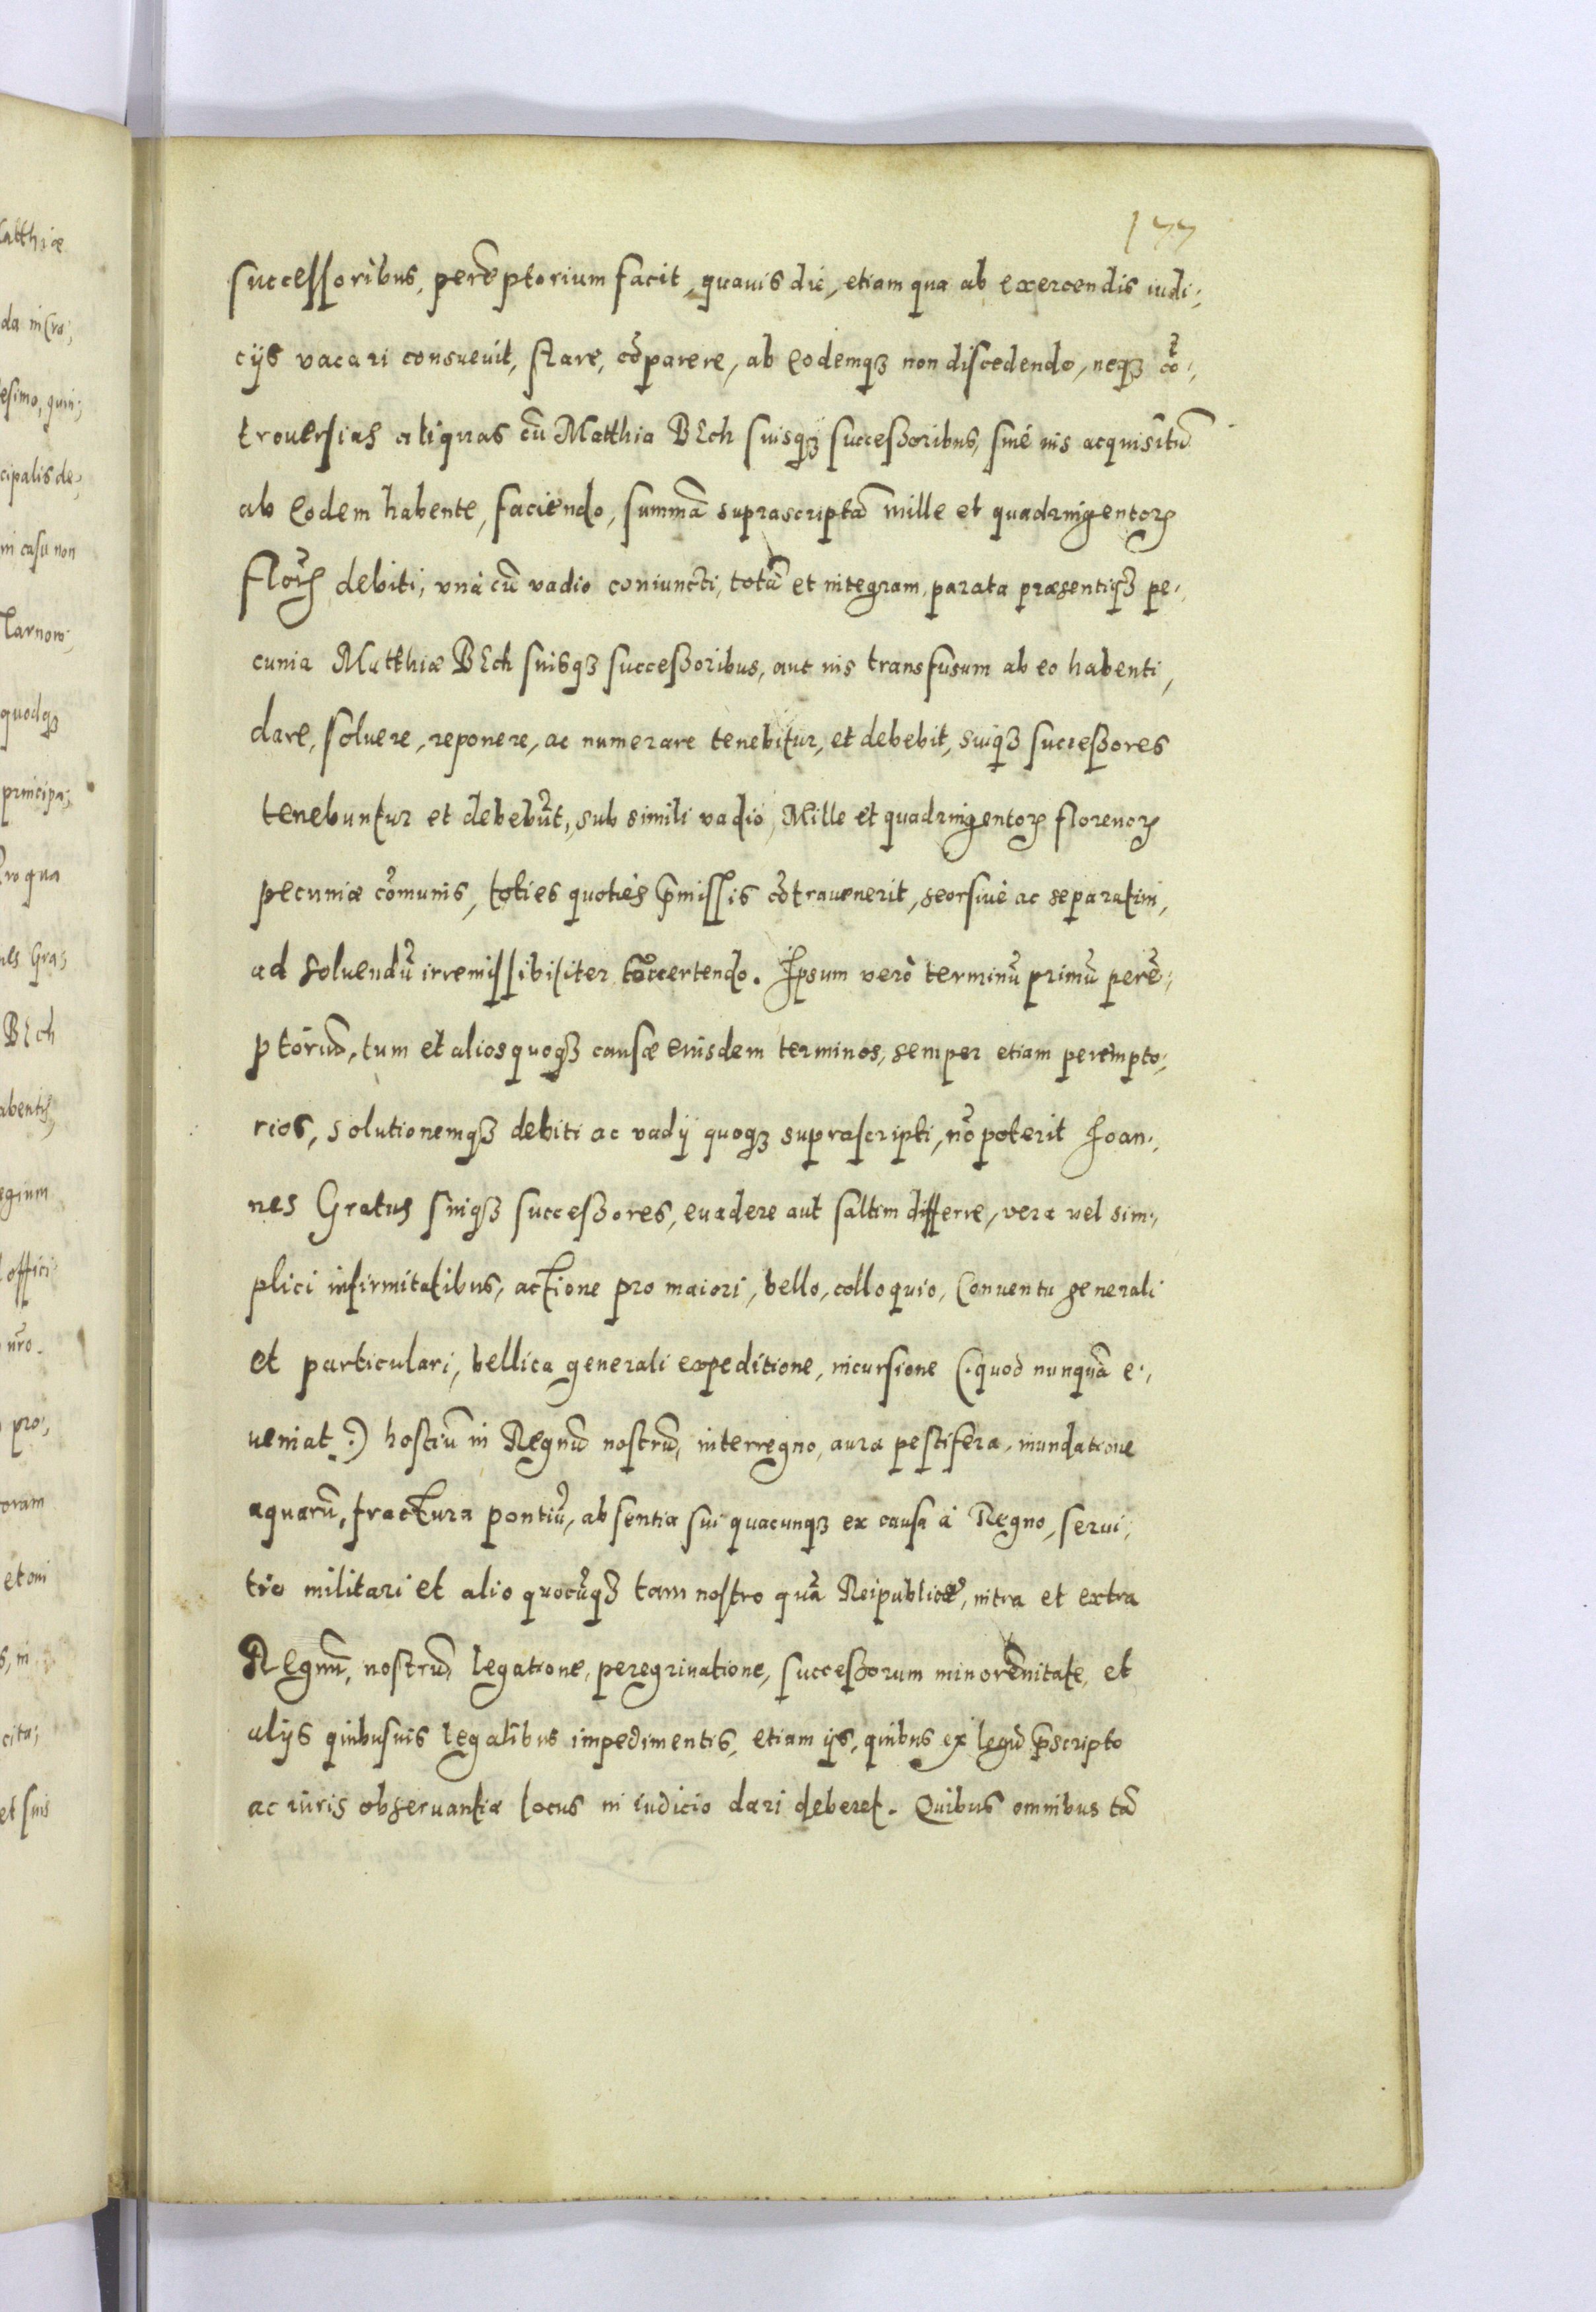 177
successoribus, perẽptorium facit, quauis die, etiam qua ab exercendis iudi;
cijs vacari consueuit, stare, cõparere, ab eodemqꝫ non discedendo, neqꝫ cõ;
trouersias aliquas cũ Matthia BEch suisqꝫ successoribus, siue ius acquisitũ
ab eodem habente, faciendo, summã suprascriptã mille et quadringentorꝝ
florꝝ debiti, vnà cũ vadio coniuncti, totã et integram, parata præsentiqꝫ pe;
cunia Matthiæ BEch suisqꝫ successoribus, aut ius transfusum ab eo habenti,
dare, soluere, reponere, ac numerare tenebitur, et debebit, suiqꝫ successores
tenebuntur et debebũt, sub simili vadio, Mille et quadringentorꝝ florenorꝝ
pecuniæ cõmunis, toties quoties p̃missis cõtrauenerit, seorsiuè ac separatim,
ad soluendũ irremissibiliter succertendo. Ipsum verò terminũ primũ perẽ;
ptoriũ, tum et alios quoqꝫ causæ eiusdem terminos, semper etiam perempto;
rios, solutionemqꝫ debiti ac vadij quoqꝫ suprascripti, nõ poterit Joan;
nes Gratus suiqꝫ successores, euadere aut saltim differre, vera vel sim;
plici infirmitatibus, actione pro maiori, bello, colloquio, Conuentu generali
et particulari, bellica generali expeditione, incursione (: quod nunquã e;
ueniat :) hostiũ in Regnũ nostrũ, interregno, aura pestifera, inundatione
aquarũ, fractura pontiũ, absentia sui quacunqꝫ ex causa à Regno, serui;
tio militari et alio quocũqꝫ tam nostro quã Reipublicæ, intra et extra
Regnũ, nostrũ legatione, peregrinatione, successorum minorẽnitate, et
alijs quibusuis legalibus impedimentis, etiam ijs, quibus ex legũ p̃scripto
ac iuris obseruantia locus in iudicio dari deberet. Quibus omnibus tã